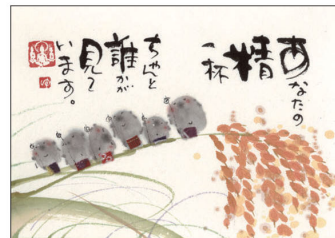 あなたの
精
一杯
ちゃんと
誰かが
見て
います。